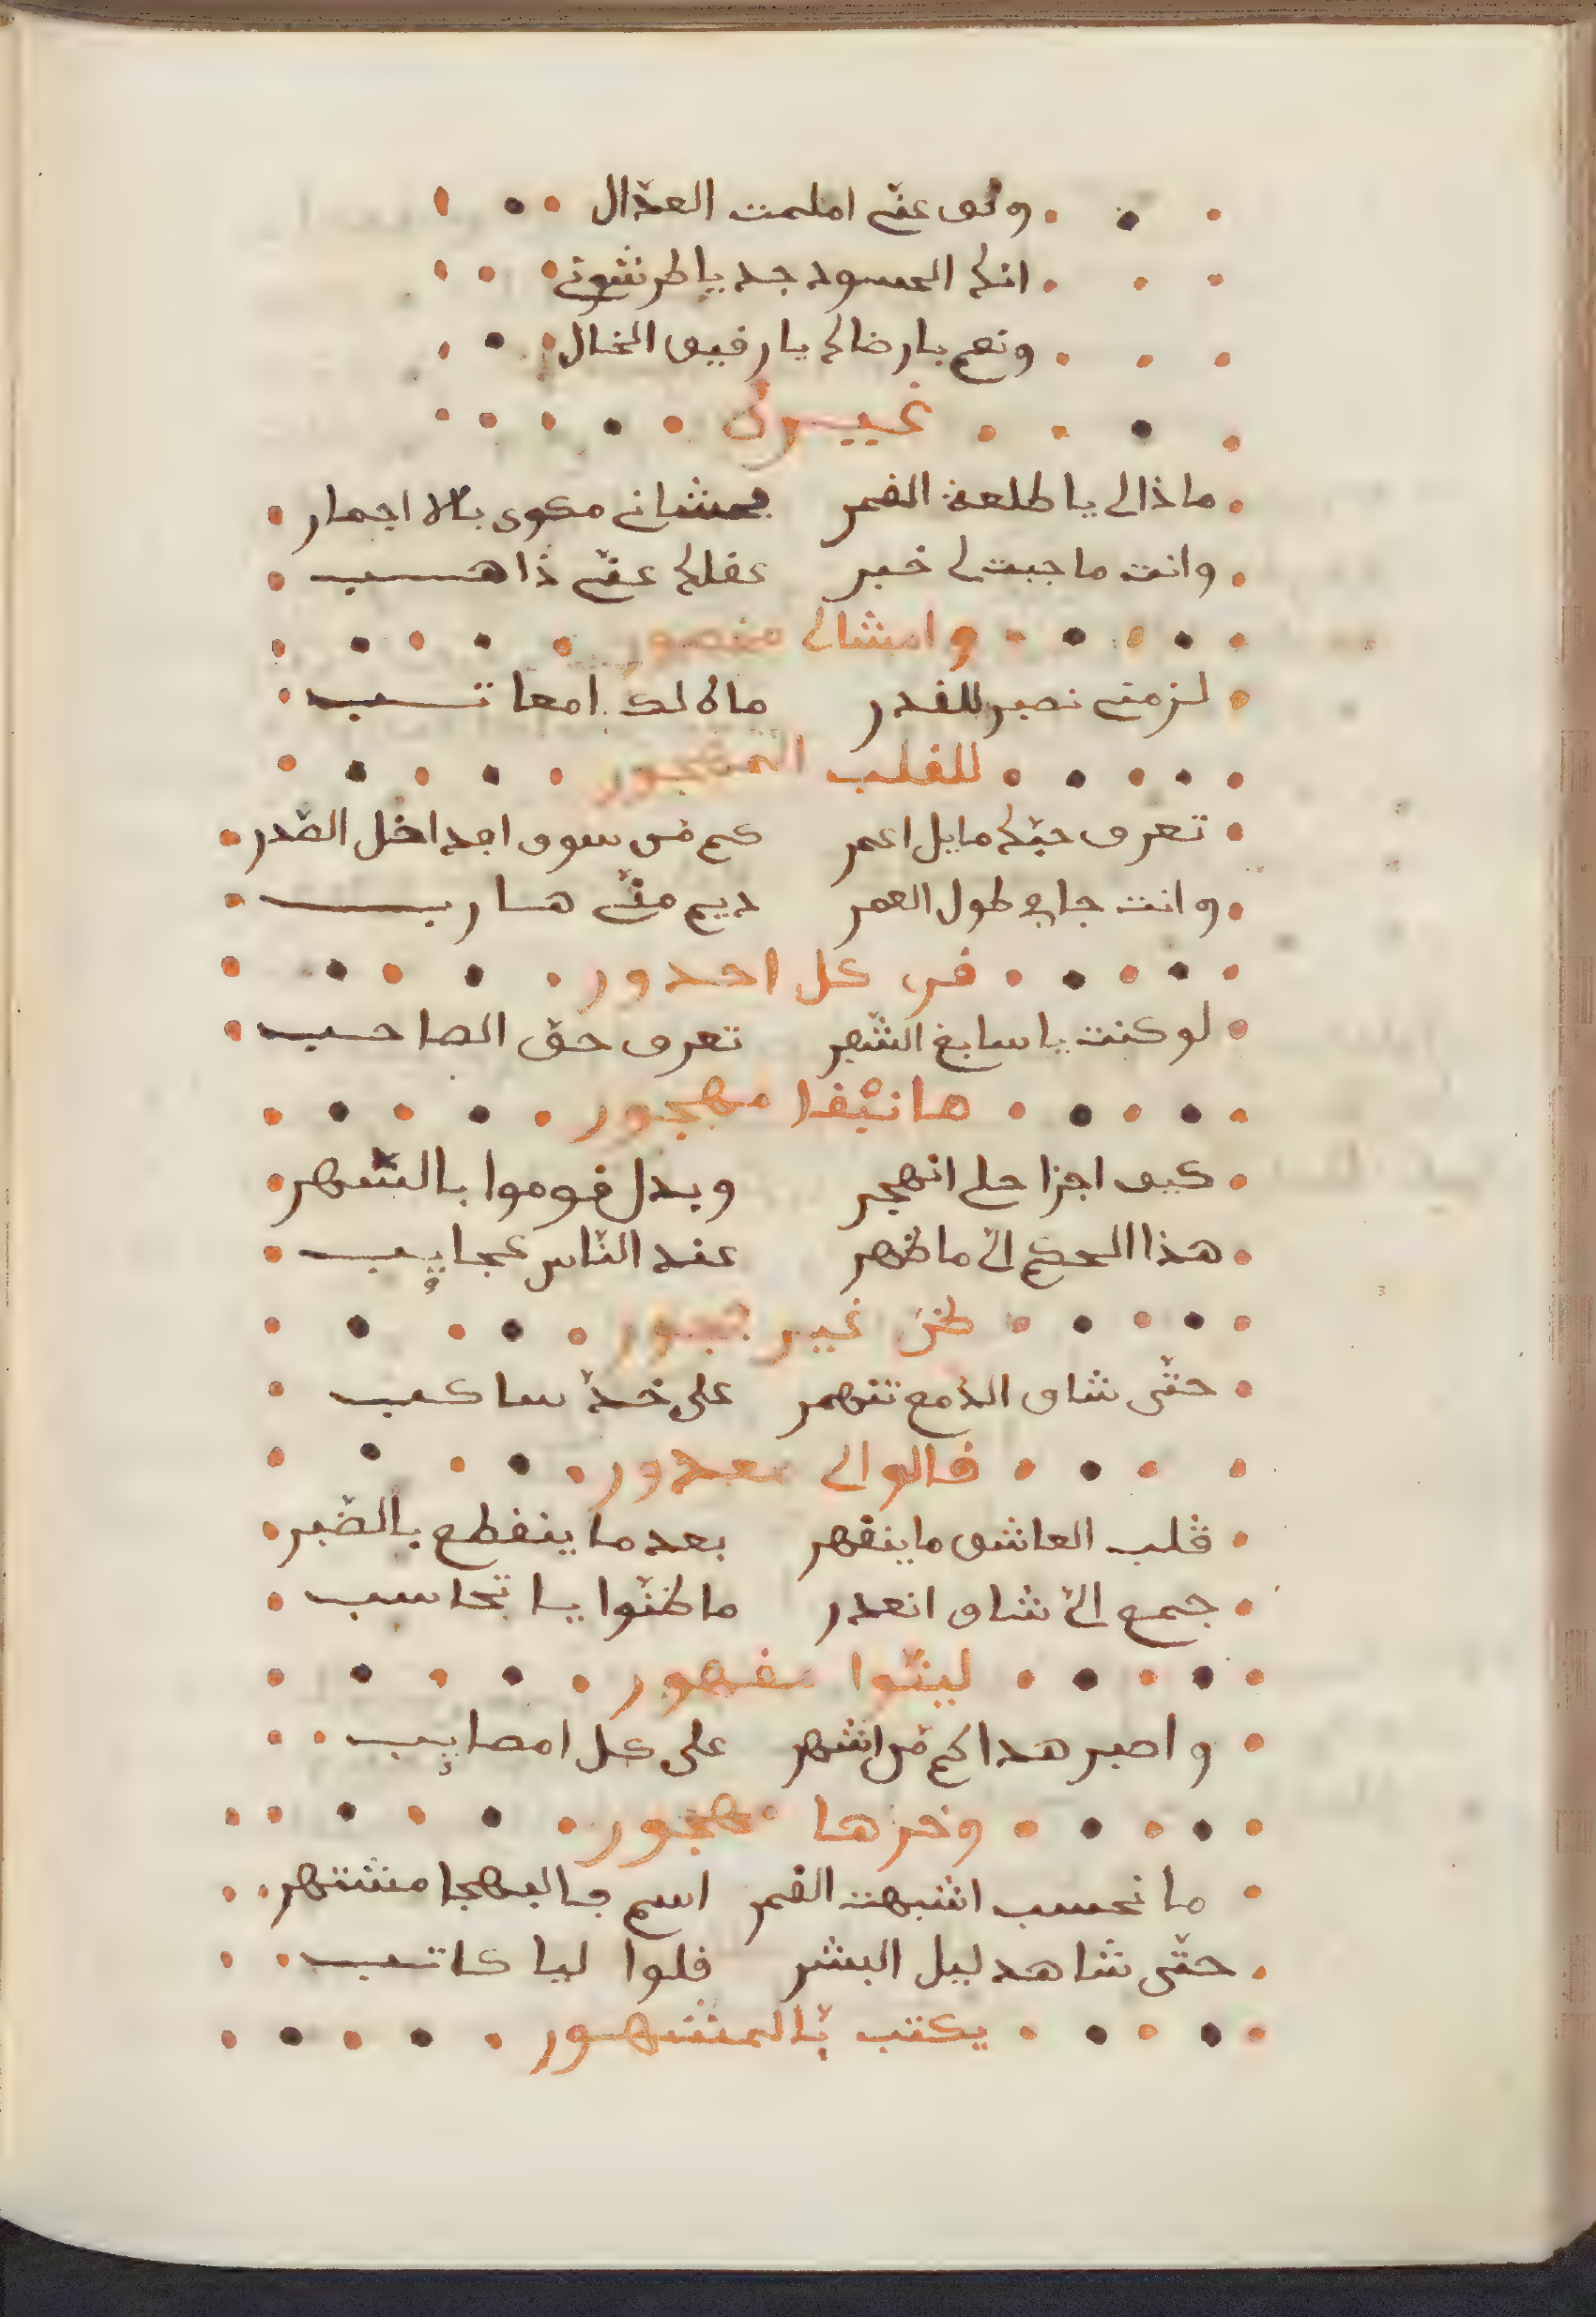 ولف عنّي املمت العذّال
انكي الحسود جد يا طرنشوني
ونعم بارضاك يا رفيق الخال
غيرك
ماذا لي يا طلعة القمر يمشاني مكوى بلا اجمار
وانت ما جبت لي خبر عقلك عنّي ذاهب
وامشالي مغصور
لزمني نصبر للقدر ماه لك امعاتب
للقلب المهجور
تعرف حبّك ما يل اعمر كم من سوق اجداخل الصّدر
وانت جافي طول العمر ديم منّي هارب
من كل احدور
لو كنت يا سابغ الشّعر تعرف حق الصاحب
ها نبقا مهجور
كيف اجزا حلي انهجر وبدل قوموا بالسّهر
هذا الحكم الي ما ظهر عند النّاس عجايب
ظن غير جور
حتّى شاف الدّمع تنهمر على خدّ ساكب
قالوا لي معدور
قلب العاشق ما ينقهر بعد ما ينقطع بالصّبر
جمع الي شاف انعدر ما ظنّوا يا تحاسب
ليتوا مقهور
واصبر هداكم من اشهر على كل امصايب
وخرها مهجور
ما نحسب اشبهت القمر اسم جالبهجا مشتهر
حتّى شاهد ليل البشر قلوا ليا كاتب
يكتب بالمشهور